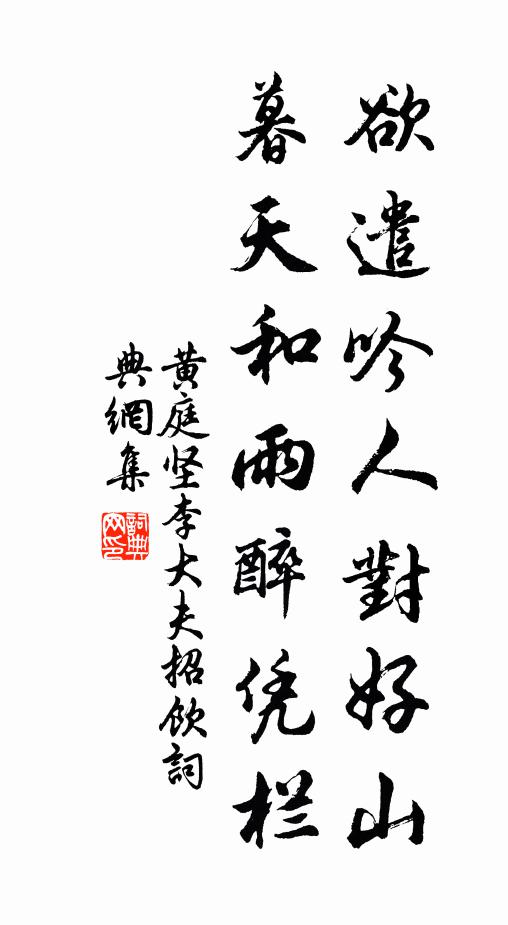 欲遣吟人對好山
暮天和雨醉凭栏
黄庭坚李大夫招飲詞
典網集
詞典网印